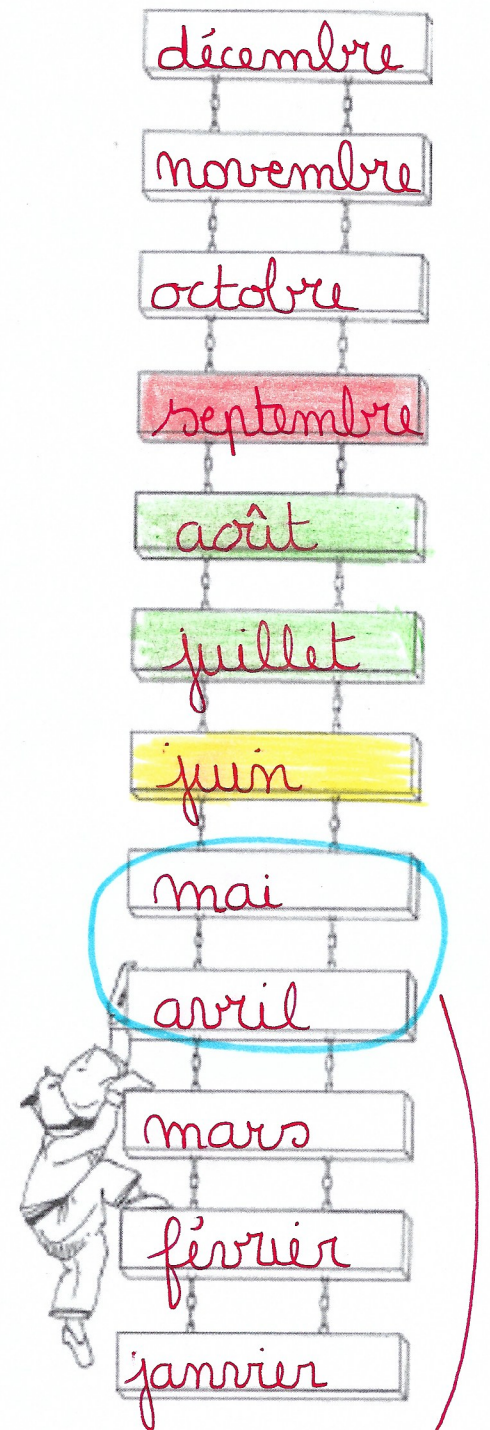 décembre
novembre
octobre
septembre
août
juillet
juin
mai
avril
mars
février
janvier